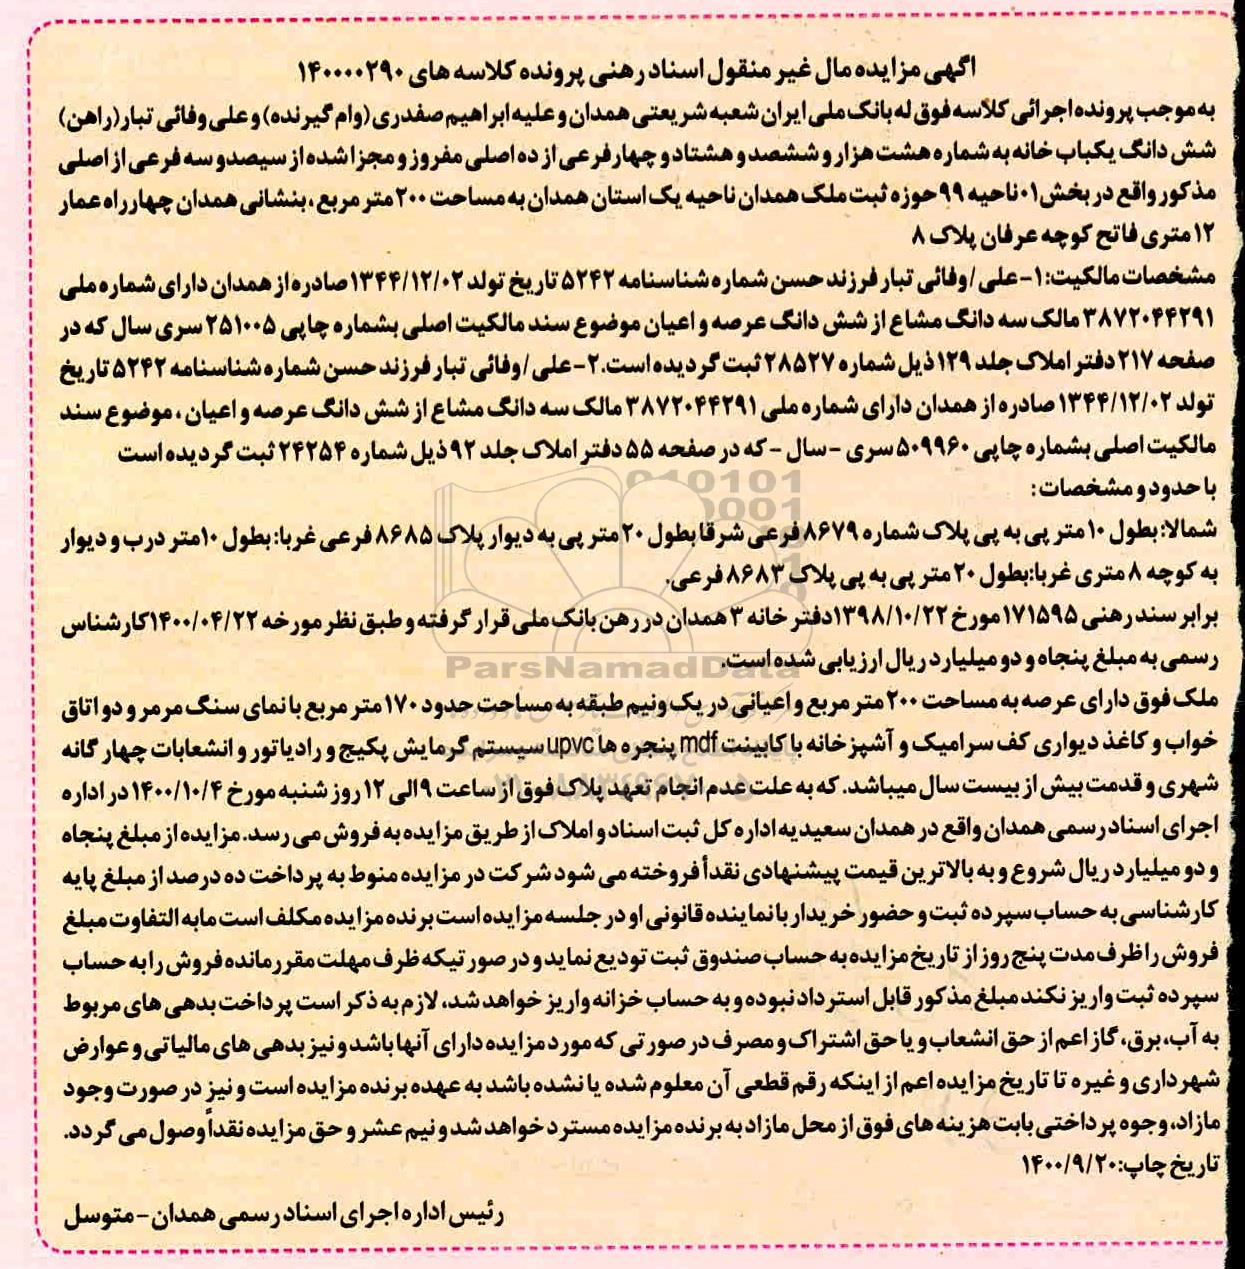 اگهی مزایده مال غیر منقول اسناد رهنی پرونده کلاسه های ۱۴۰۰۰۰۲۹۰
به موجب پرونده اجرائی کلاسه فوق له بانک ملی ایران شعبه شریعتی همدان و علیه ابراهیم صفدری (وام گیرنده) و علی وفائی تبار(راهن)
شش دانگ یکباب خانه به شماره هشت هزار و ششصد و هشتاد و چهارفرعی از ده اصلی مفروز و مجزا شده از سیصدو سه فرعی از اصلی
مذکور واقع در بخش ۰۱ ناحیه ۹۹ حوزه ثبت ملک همدان ناحیه یک استان همدان به مساحت ۲۰۰ متر مربع ، بنشانی همدان چهارراه عمار
۱۲ متری فاتح کوچه عرفان پلاک ۸
مشخصات مالکیت: ۱- علی / وفائی تبار فرزند حسن شماره شناسنامه ۵۲۴۲ تاریخ تولد ۱۳۴۴/۱۲/۰۲ صادره از همدان دارای شماره ملی
۳۸۷۲۰۴۴۲۹۱ مالک سه دانگ مشاع از شش دانگ عرصه و اعیان موضوع سند مالکیت اصلی بشماره چاپی ۲۵۱۰۰۵ سری سال که در
صفحه ۲۱۷ دفتر املاک جلد ۱۲۹ ذیل شماره ۲۸۵۲۷ ثبت گردیده است. ۲- علی / وفائی تبار فرزند حسن شماره شناسنامه ۵۲۴۲ تاریخ
تولد ۱۳۴۴/۱۲/۰۲ صادره از همدان دارای شماره ملی ۳۸۷۲۰۴۴۲۹۱ مالک سه دانگ مشاع از شش دانگ عرصه و اعیان ، موضوع سند
مالکیت اصلی بشماره چاپی ۵۰۹۹۶۰ سری - سال - که در صفحه ۵۵ دفتر املاک جلد ۹۲ ذیل شماره ۲۴۲۵۴ ثبت گردیده است
با حدود و مشخصات :
شمالا: بطول ۱۰ متر پی به پی پلاک شماره ۸۶۷۹ فرعی شرقا بطول ۲۰ متر پی به دیوار پلاک ۸۶۸۵ فرعی غربا: بطول ۱۰متر درب و دیوار
به کوچه ۸ متری غربا:بطول ۲۰ متر پی به پی پلاک ۸۶۸۳ فرعی.
برابر سند رهنی ۱۷۱۵۹۵ مورخ ۱۳۹۸/۱۰/۲۲ دفتر خانه ۳ همدان در رهن بانک ملی قرار گرفته و طبق نظر مورخه ۱۴۰۰/۰۴/۲۲ کارشناس
رسمی به مبلغ پنجاه و دو میلیارد ریال ارزیابی شده است.
ParsNamadData
ملک فوق دارای عرصه به مساحت ۲۰۰ متر مربع و اعیانی در یک ونیم طبقه به مساحت حدود ۱۷۰ متر مربع با نمای سنگ مرمر و دو اتاق
خواب و کاغذ دیواری کف سرامیک و آشپزخانه با کابینت mdf پنجره ها upvc سیستم گرمایش پکیج و رادیاتور و انشعابات چهار گانه
شهری و قدمت بیش از بیست سال میباشد. که به علت عدم انجام تعهد پلاک فوق از ساعت ۹ الی ۱۲ روز شنبه مورخ ۱۴۰۰/۱۰/۴ در اداره
اجرای اسناد رسمی همدان واقع در همدان سعیدیه اداره کل ثبت اسناد و املاک از طریق مزایده به فروش می رسد. مزایده از مبلغ پنجاه
و دو میلیارد ریال شروع و به بالاترین قیمت پیشنهادی نقدأ فروخته می شود شرکت در مزایده منوط به پرداخت ده درصد از مبلغ پایه
کارشناسی به حساب سپرده ثبت و حضور خریدار یا نماینده قانونی او در جلسه مزایده است برنده مزایده مکلف است مابه التفاوت مبلغ
فروش را ظرف مدت پنج روز از تاریخ مزایده به حساب صندوق ثبت تودیع نماید و در صورتیکه ظرف مهلت مقرر مانده فروش را به حساب
سپرده ثبت واریز نکند مبلغ مذکور قابل استرداد نبوده و به حساب خزانه واریز خواهد شد، لازم به ذکر است پرداخت بدهی های مربوط
به آب، برق، گاز اعم از حق انشعاب و یا حق اشتراک و مصرف در صورتی که مورد مزایده دارای آنها باشد و نیز بدهی های مالیاتی و عوارض
شهرداری و غیره تا تاریخ مزایده اعم از اینکه رقم قطعی آن معلوم شده یا نشده باشد به عهده برنده مزایده است و نیز در صورت وجود
مازاد، وجوه پرداختی بابت هزینه های فوق از محل مازاد به برنده مزایده مسترد خواهد شد و نیم عشر و حق مزایده نقداً وصول می گردد.
تاریخ چاپ: ۱۴۰۰/۹/۲۰
رئیس اداره اجرای اسناد رسمی همدان - متوسل